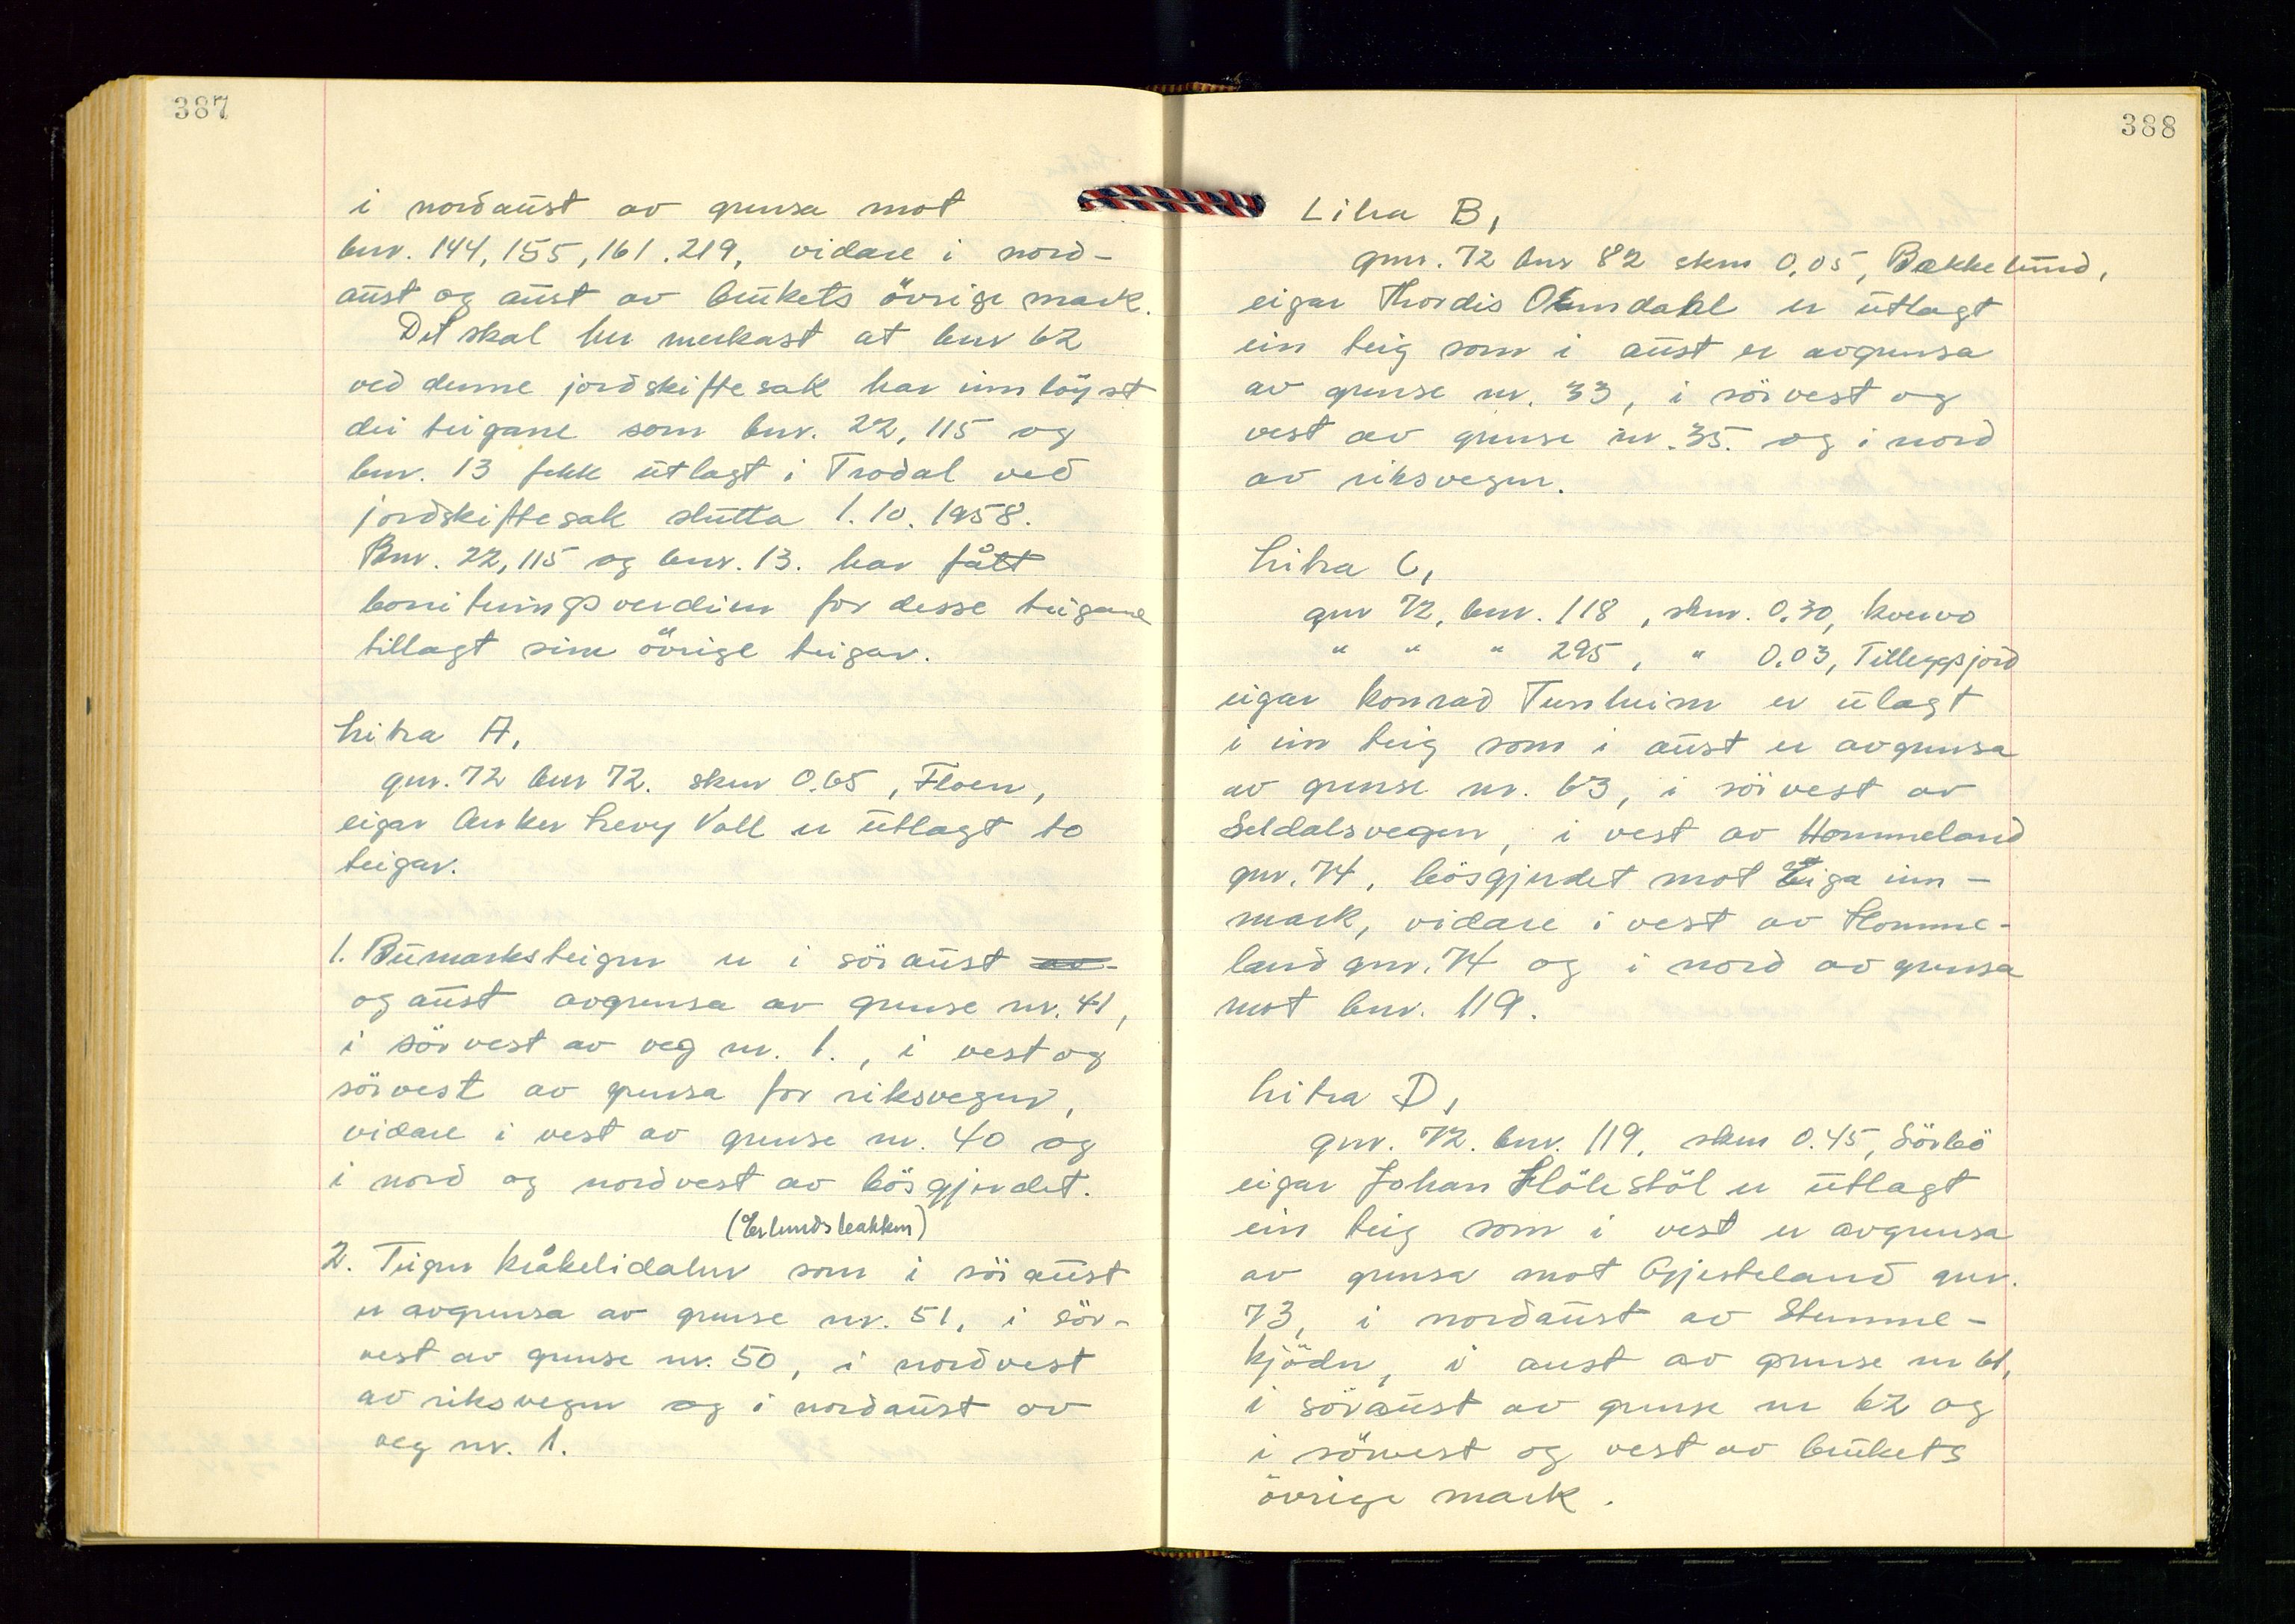 387
i nordaust av grensa mot
bnr. 144, 155, 161. 219, vidare i nord-
aust og aust av brukets övrige mark.
Det skal her merkast at bnr 62
ved denne jordskiftesak har innlöyst
dei teigane som bnr. 22, 115 og
bnr. 13 fekk utlagt i Trodal ved
jordskiftesak slutta 1.10.1958.
Bnr. 22, 115 og bnr. 13. har fått
boniteringsverdien for desse teigane
tillagt sine övrige teigar.
Litra A,
gnr. 72 bnr 72. skm 0.65, Floen,
eigar Anker Levy Vall er utlagt to
teigar.
1. Bumarksteigen er i söraust av
og aust avgrensa av grense nr. 41,
i sörvest av veg nr. 1., i vest og
sörvest av grensa for riksvegen,
vidare i vest av grense nr. 40 og
i nord og nordvest av bösgjerdet.
(Erlundsbakken)
2. Teigen Kråkelidalen som i söraust
er avgrensa av grense nr. 51, i sör-
vest av grense nr. 50, i nordvest
av riksvegen og i nordaust av
veg nr. 1.
388
Litra B,
gnr. 72 bnr 82 skm 0,05, Bekkelund,
eigar Thordis Omdahl er utlagt
ein teig som i aust er avgrensa
av grense nr. 33, i sörvest og
vest av grense nr. 35. og i nord
av riksvegen.
Litra C,
gnr 72, bnr. 118, skm. 0.30, Kvervo
" " " 295, " 0.03, Tilleggsjord
eigar Konrad Tunheim er ulagt
i ein teig som i aust er avgrensa
av grense nr. 63, i sörvest av
Seldalsvegen, i vest av Hommeland
gnr. 74, bösgjerdet mot Eiga inn-
mark, vidare i vest av Homme-
land gnr. 74 og i nord av grensa
mot bnr. 119.
Litra D,
gnr. 72. bnr. 119, skm 0.45, Sörbö
eigar Johan Hölestöl er utlagt
ein teig som i vest er avgrensa
av grensa mot Gjesteland gnr.
73, i nordaust av Stemme-
kjödn, i aust av grense nr 61,
i söraust av grense nr 62 og
i sörvest og vest av brukets
övrige mark.